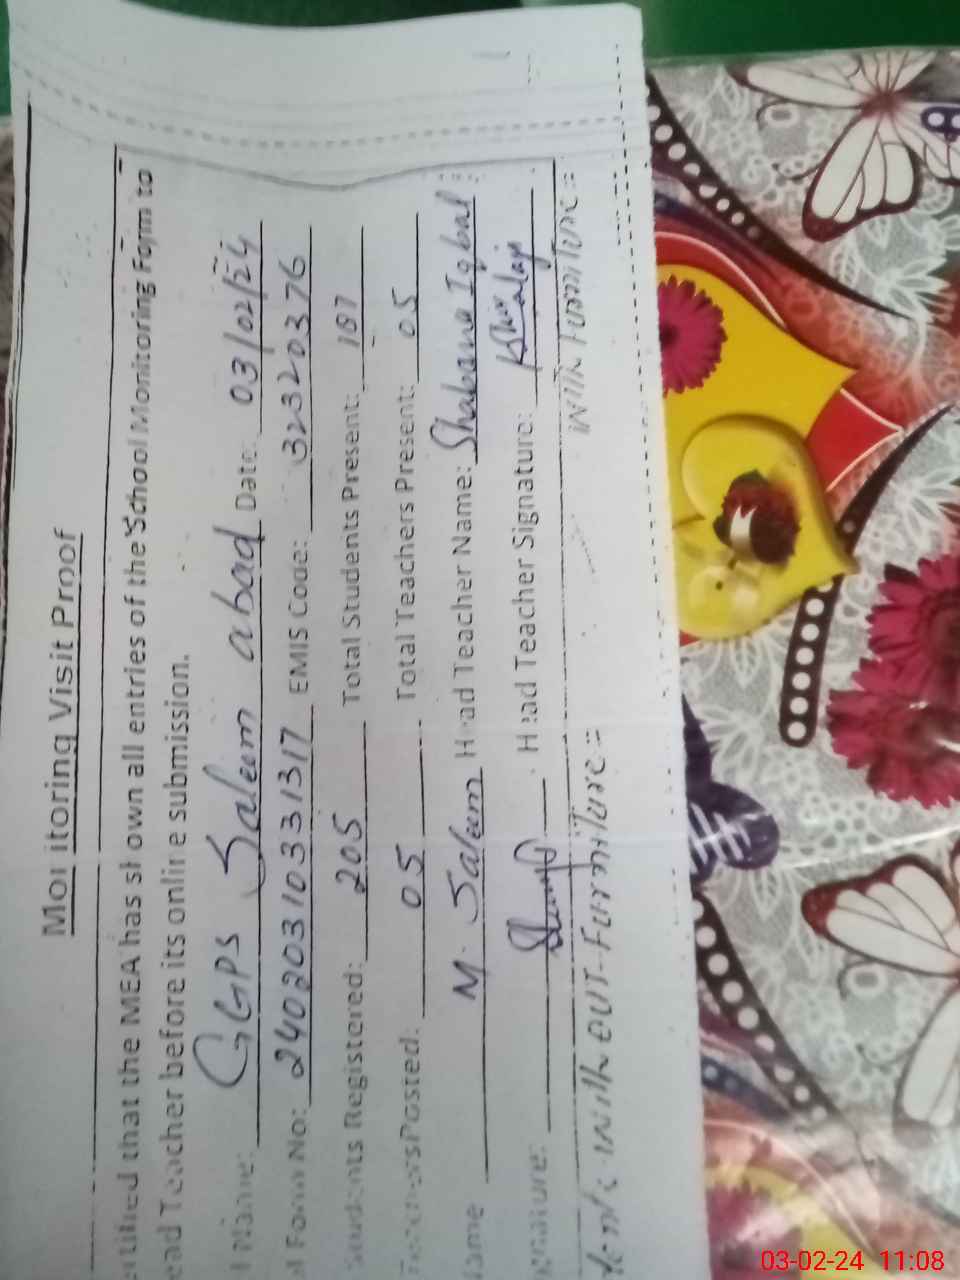 Monitoring Visit Proof
tified that the MEA has shown all entries of the School Monitoring Form to
ead Teacher before its online submission.
l Name: GGPS Saleem abad Date: 03/02/24
Form No: 24020310331317 EMIS Code: 32320376
Students Registered: 205 Total Students Present: 187
Teachers Posted: 05 Total Teachers Present: 05
Name M. Saleem Head Teacher Name: Shabana Iqbal
ignature: Head Teacher Signature:
without Furniture = with Furniture =
03-02-24 11:08